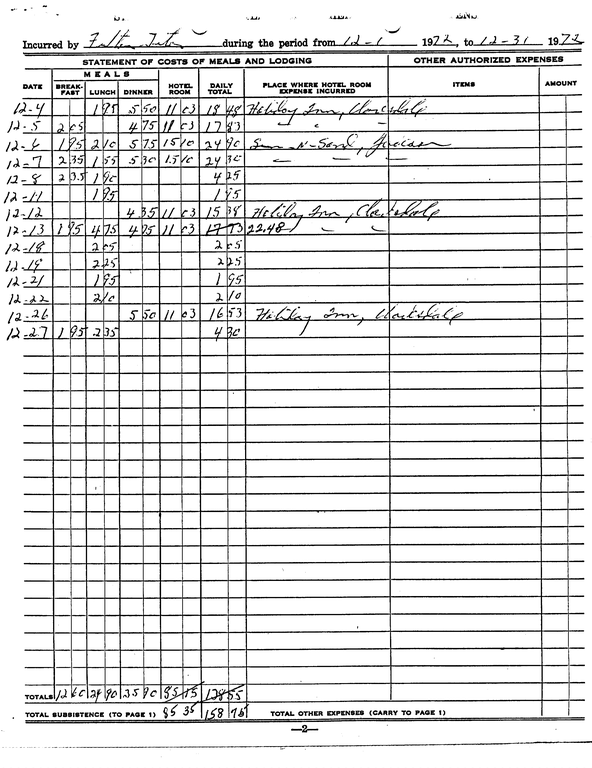 Incurred by Fulton Tutor during the period from 12-1 1972, to 12-31 1972
STATEMENT OF COSTS OF MEALS AND LODGING OTHER AUTHORIZED EXPENSES
MEALS
DATE BREAK-FAST LUNCH DINNER HOTEL ROOM DAILY TOTAL PLACE WHERE HOTEL ROOM EXPENSE INCURRED ITEMS AMOUNT
12-4 1 95 5 50 11 03 18 48 Holiday Inn, Clarksdale
12-5 2 05 4 75 11 03 17 83 " " "
12-6 1 95 2 10 5 75 15 10 24 90 Sun-N-Sand, Jackson
12-7 2 35 1 55 5 30 15 10 24 30
12-8 2 35 1 90 4 25
12-11 1 95 1 95
12-12 4 35 11 03 15 38 Holiday Inn, Clarksdale
12-13 1 95 4 75 4 75 11 03 17 73 22.48
12-18 2 05 2 05
12-19 2 25 2 25
12-21 1 95 1 95
12-22 2 10 2 10
12-26 5 50 11 03 16 53 Holiday Inn, Clarksdale
12-27 1 95 2 35 4 30
TOTALS 12 60 24 90 35 90 85 15 128 55
TOTAL SUBSISTENCE (TO PAGE 1) 85 35 158 75 TOTAL OTHER EXPENSES (CARRY TO PAGE 1)
—2—